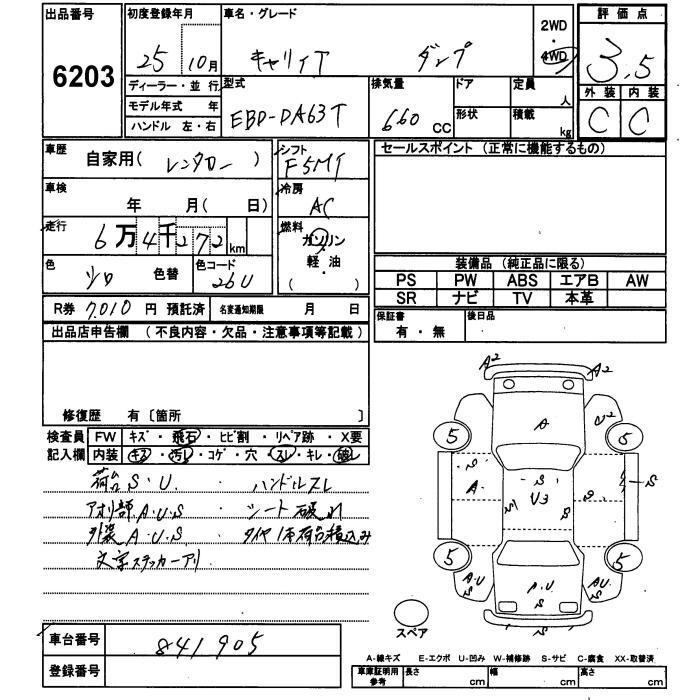 出品番号 初度登録年月 車名・グレード 2WD 評価点
6203 25年 10月 キャリイT ダンプ ・ 4WD 3.5
ディーラー・並行 型式 排気量 ドア 定員 人 外装 内装
モデル年式 年 EBD-DA63T 660 CC 形状 積載 kg C C
ハンドル 左・右
車歴 自家用(レンタカー) シフト F5MT セールスポイント (正常に機能するもの)
車検 年 月( 日) 冷房 AC
走行 6万4千272km 燃料 ガソリン
軽・油
( )
色 シロ 色替 色コード 26U
装備品 (純正品に限る)
PS PW ABS エアB AW
SR ナビ TV 本革
R券 7,010 円 預託済 名変通知期限 月 日 保証書 有・無 後日品
出品店申告欄 (不良内容・欠品・注意事項等記載)
修復歴 有〔箇所 〕
検査員 FW キズ・飛石・ヒビ割・リペア跡・X要
記入欄 内装 キズ・汚レ・コゲ・穴・スレ・キレ・破レ
荷台S.U. ハンドルスレ
アオリ部A.U.S シート破れ
外装A.U.S タイヤ1本荷台積込み
文字ステッカーアリ
A2 A2
A U2
5 5
S S
A S U3 S S S
S
5 5
A.U S A.U S AU S
S
スペア
車台番号 841905
登録番号
A-線キズ E-エクボ U-凹み W-補修跡 S-サビ C-腐食 XX-取替済
車庫証明用参考 長さ cm 幅 cm 高さ cm